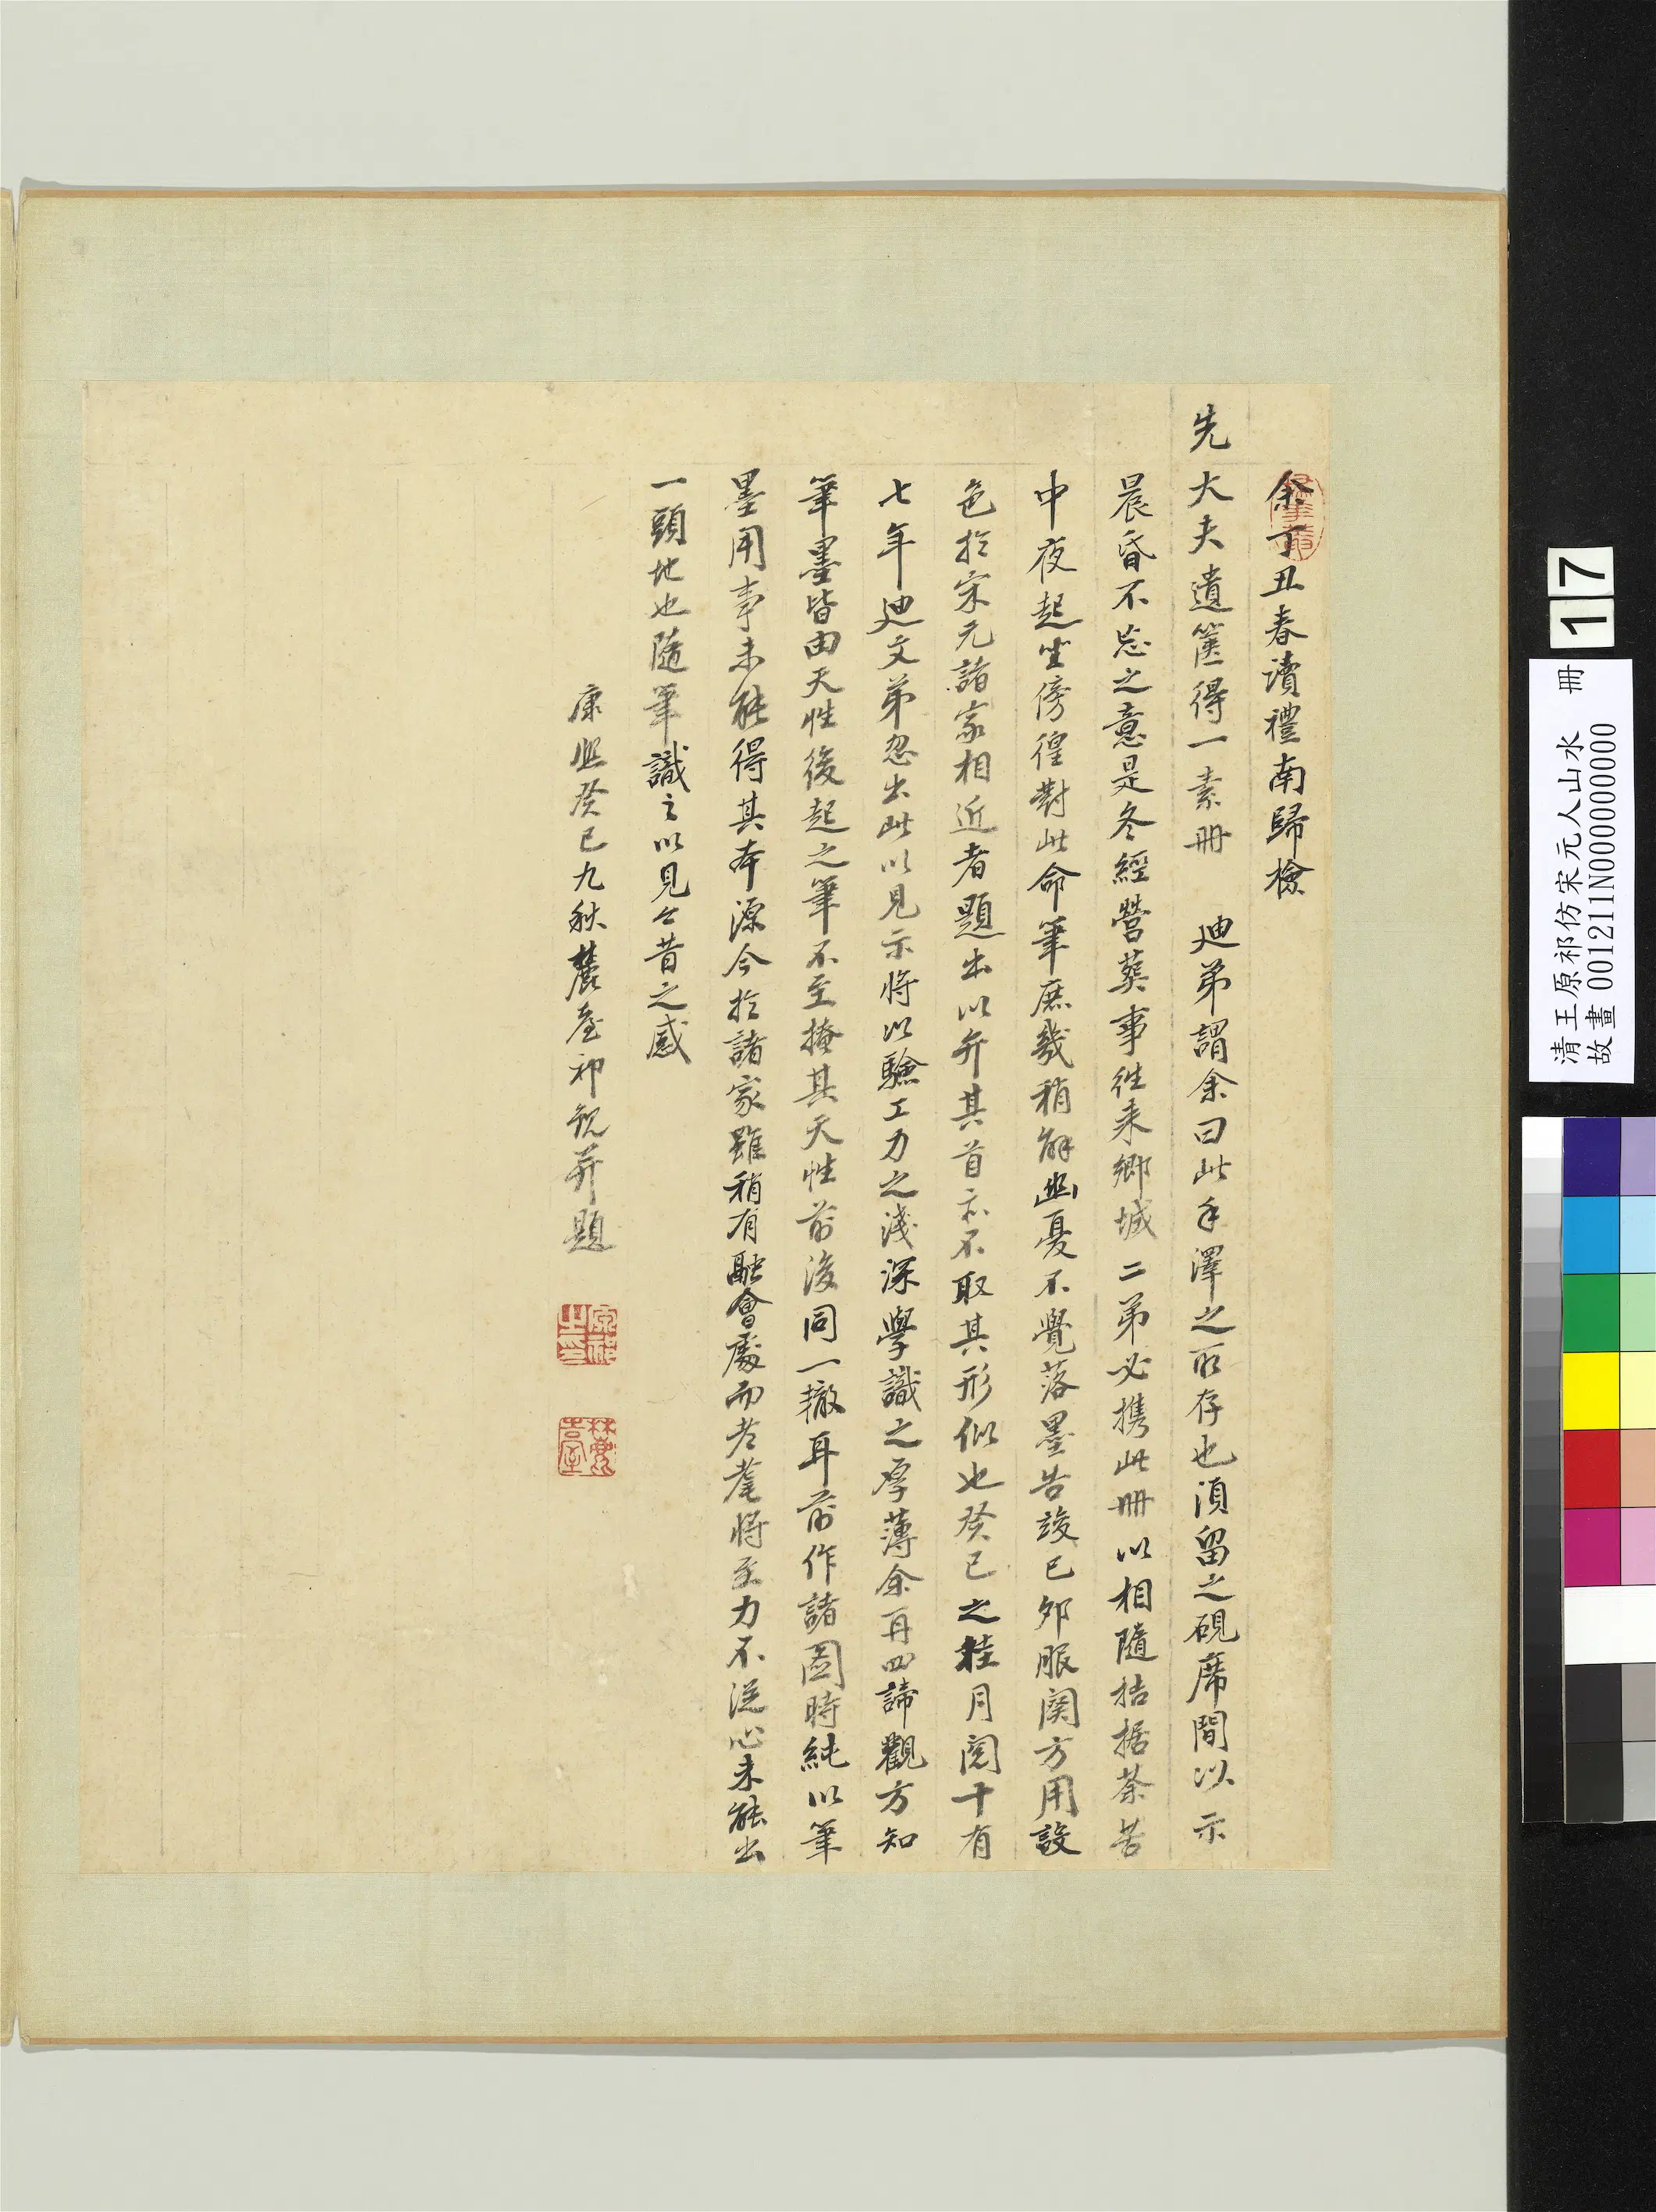 余丁丑春讀禮南歸檢
先大夫遺篋得一素冊 迪弟謂余曰此手澤之所存也湏留之硯席間以示
晨昏不忘之意是冬經營葬事徃来鄉城二弟必携此冊以相隨拮据荼苦
中夜起坐傍徨對此命筆庶幾稍解幽憂不覺落墨告竣已夘服闋方用設
色扵宋元諸家相近者題出以弁其首亦不取其形似也癸巳之桂月閱十有
七年迪文弟忽出此以見示將以驗工力之淺深學識之厚薄余再四諦觀方知
筆墨皆由天性後起之筆不至掩其天性前後同一轍耳前作諸圖時純以筆
墨用事未能得其本源今扵諸家雖稍有融會處而老耄將至力不從心未能出
一頭地也隨筆識之以見今昔之感
康熙癸巳九秋麓臺祁觀并題
原祁之印
17
清王原祁仿宋元人山水 冊
故畫 001211N000000000